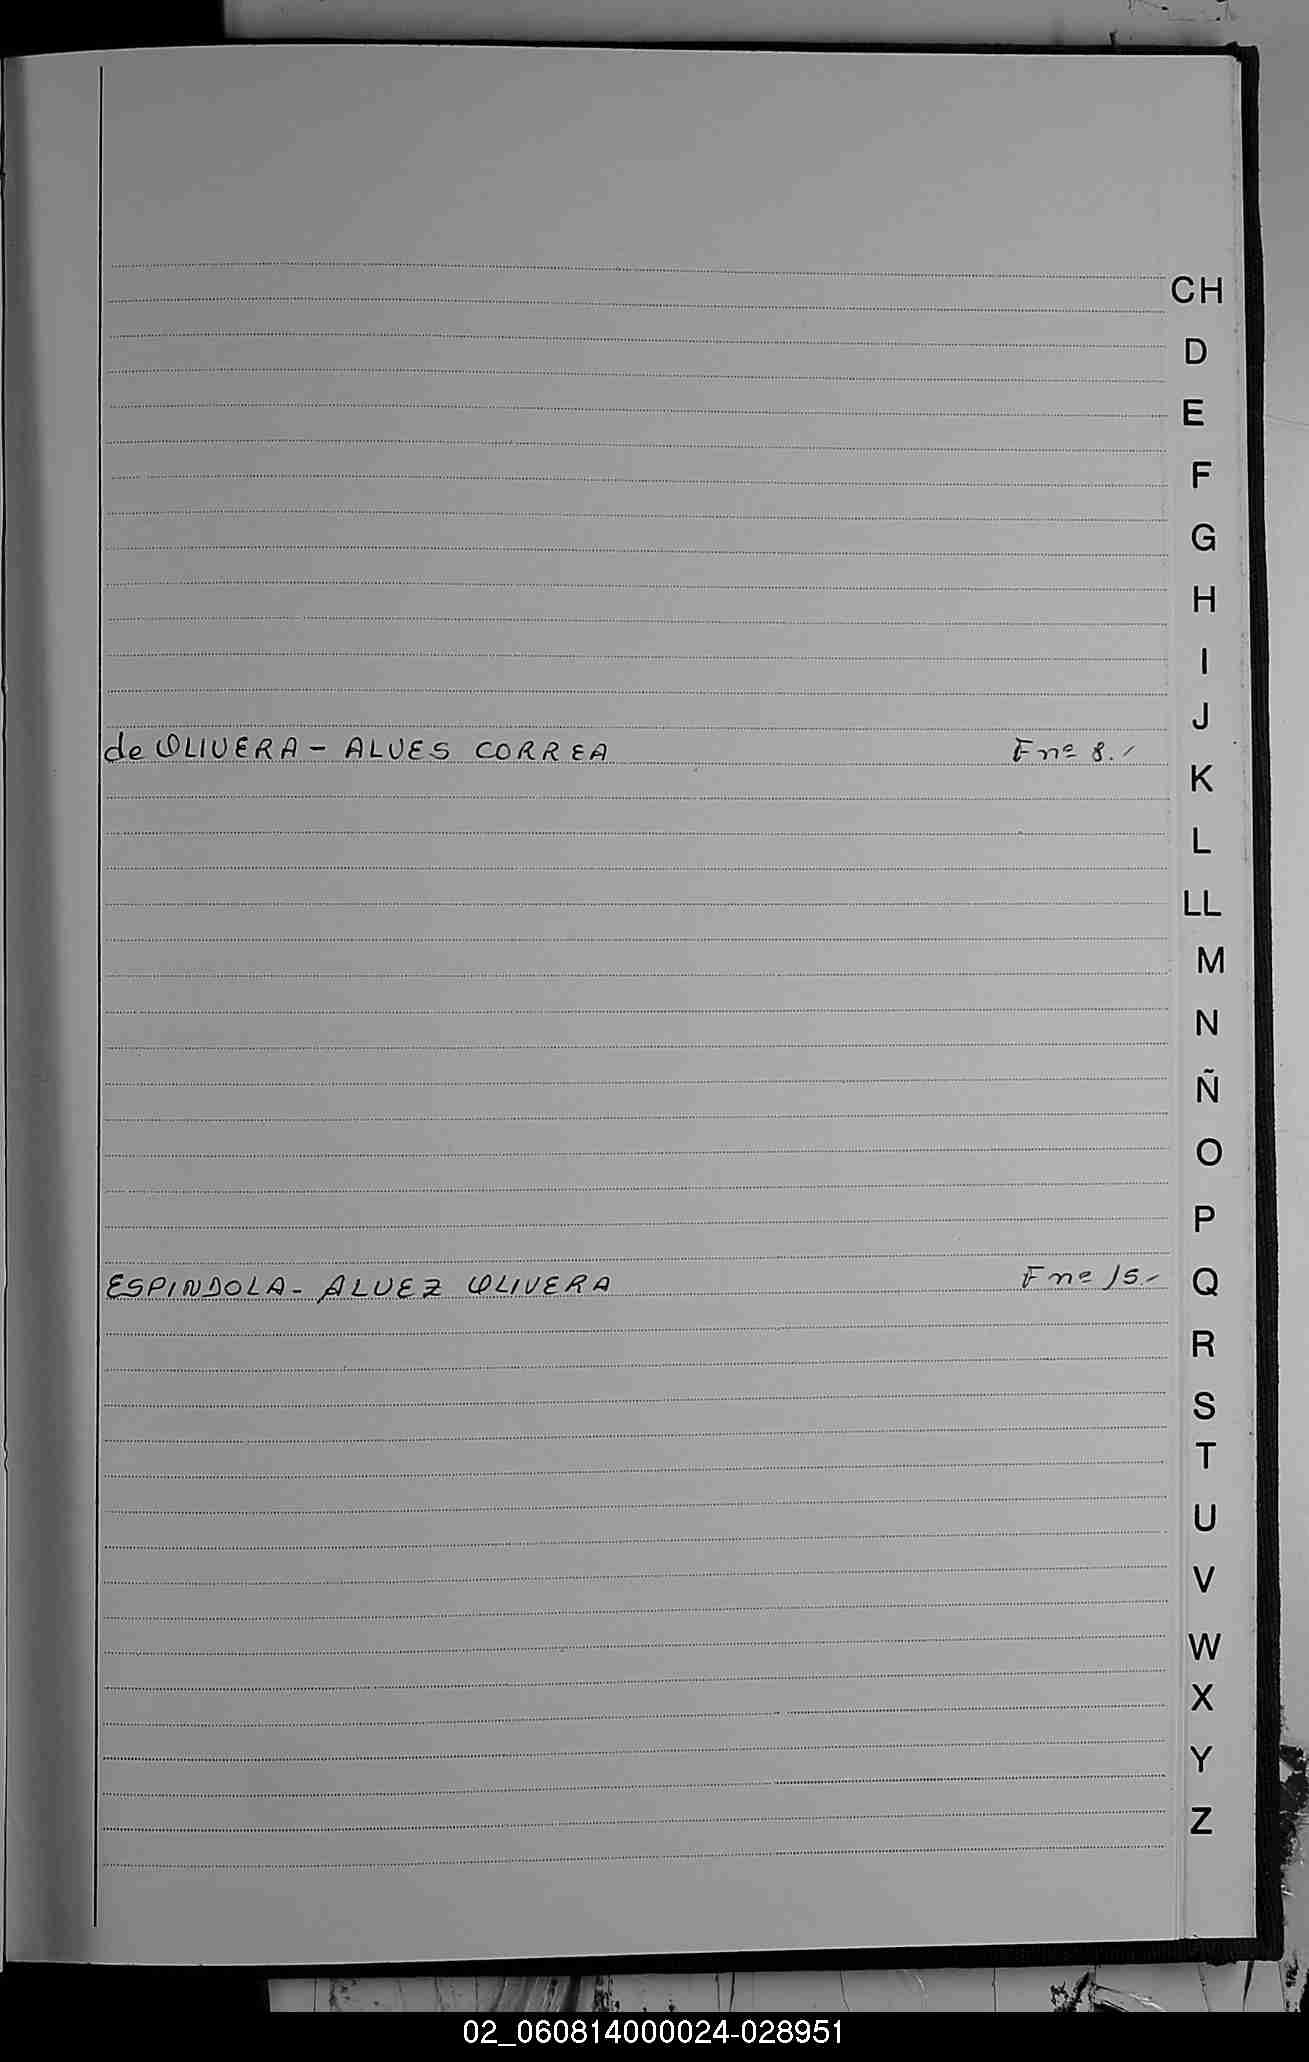 CH
D
E
F
G
H
I
J
de OLIVERA - ALVES CORREA Fnº 8.-
K
L
LL
M
N
Ñ
O
P
ESPINDOLA - ALVEZ OLIVERA Fnº 15.-
Q
R
S
T
U
V
W
X
Y
Z
02_060814000024-028951